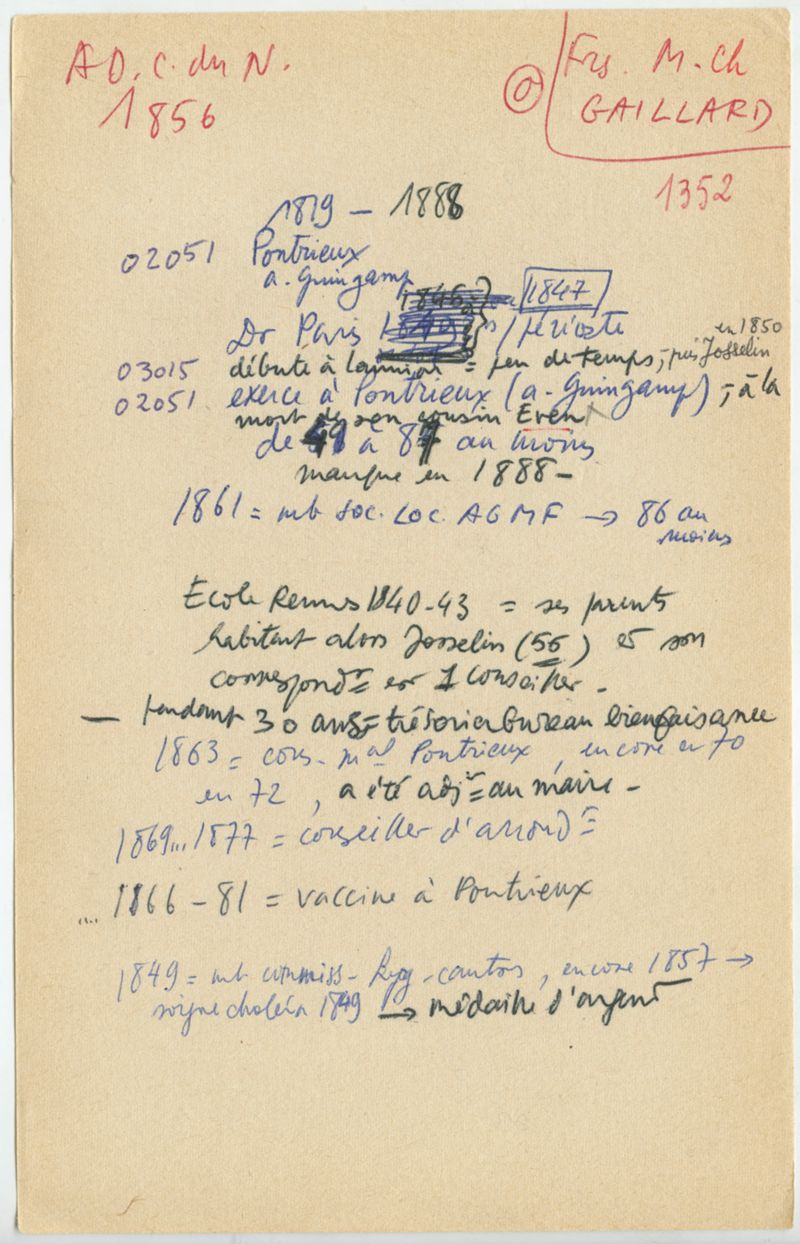 AD. C. du N.
1856
Frs. M. Ch
GAILLARD
1352
1819 - 1888
02051 Pontrieux
a. Guingamp
1847
Dr Paris
en 1850
03015 débute à Lannion = peu de temps, puis Josselin
02051 exerce à Pontrieux (a. Guingamp), - à la
mort de son cousin Even
de à 87 au moins
manque en 1888 -
1861 = mb Soc. Loc. AGMF → 86 au
moins
Ecole Rennes 1840-43 = ses parents
habitent alors Josselin (56) et son
correspondt = est 1 conseiller -
- pendant 30 ans = trésorier bureau bienfaisance
1863 = cons. mal Pontrieux, encore en 70
en 72, a été adjt = au maire -
1869...1877 = conseiller d'arrondt =
.... 1866 - 81 = vaccine à Pontrieux
1849 = mb commiss. Hyg. canton, encore 1857 →
soigne choléra 1849 → médaille d'argent